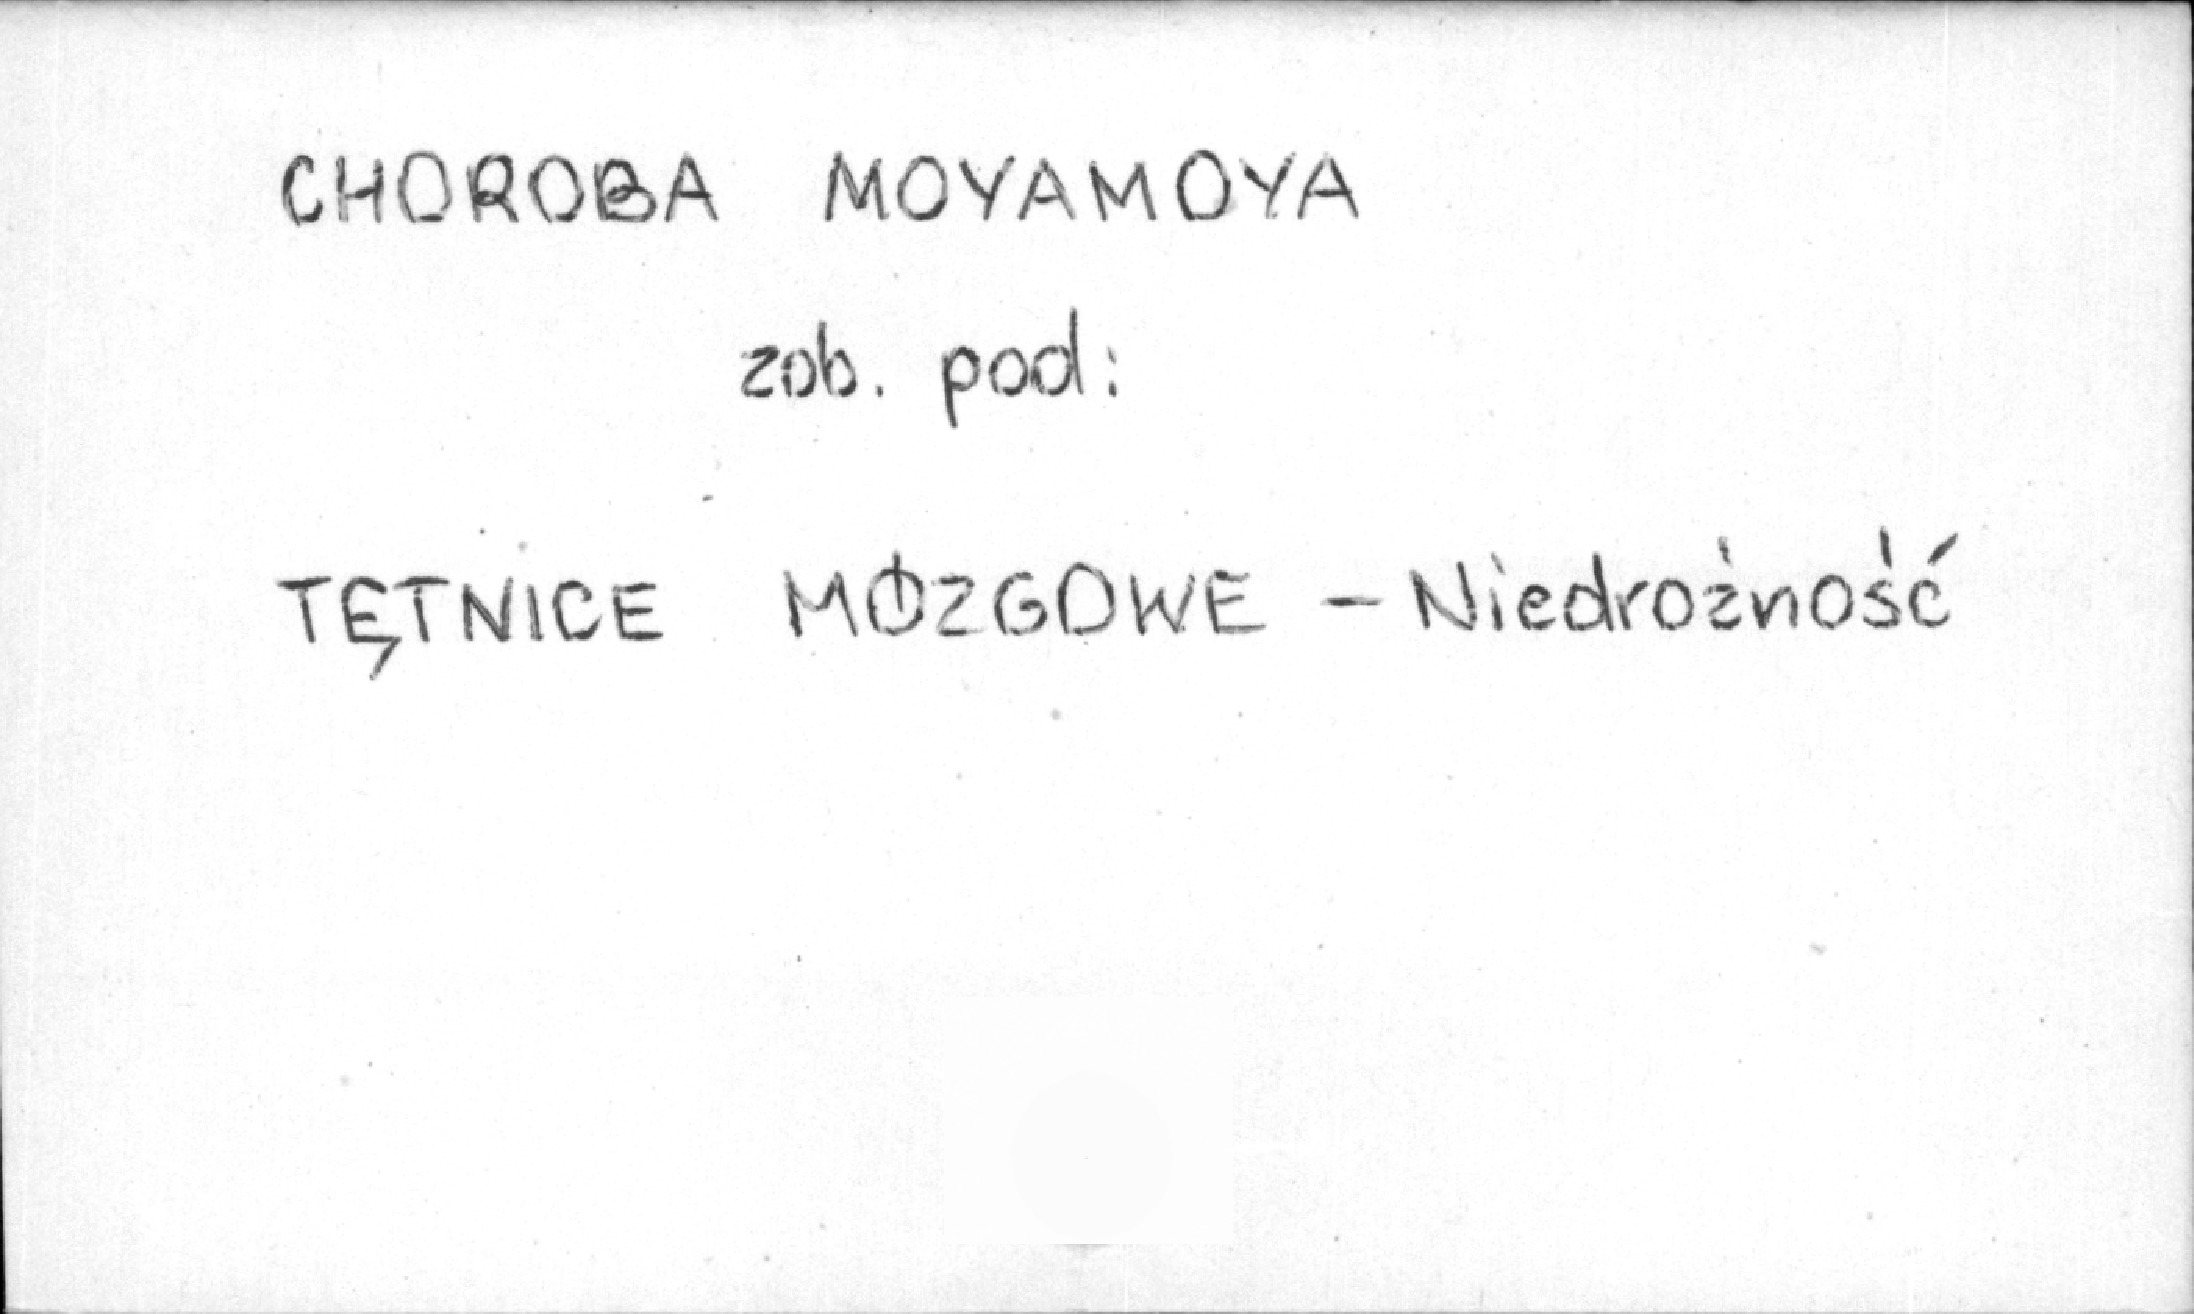 CHOROBA MOYAMOYA
zob. pod:
TĘTNICE MÓZGOWE - Niedrożność